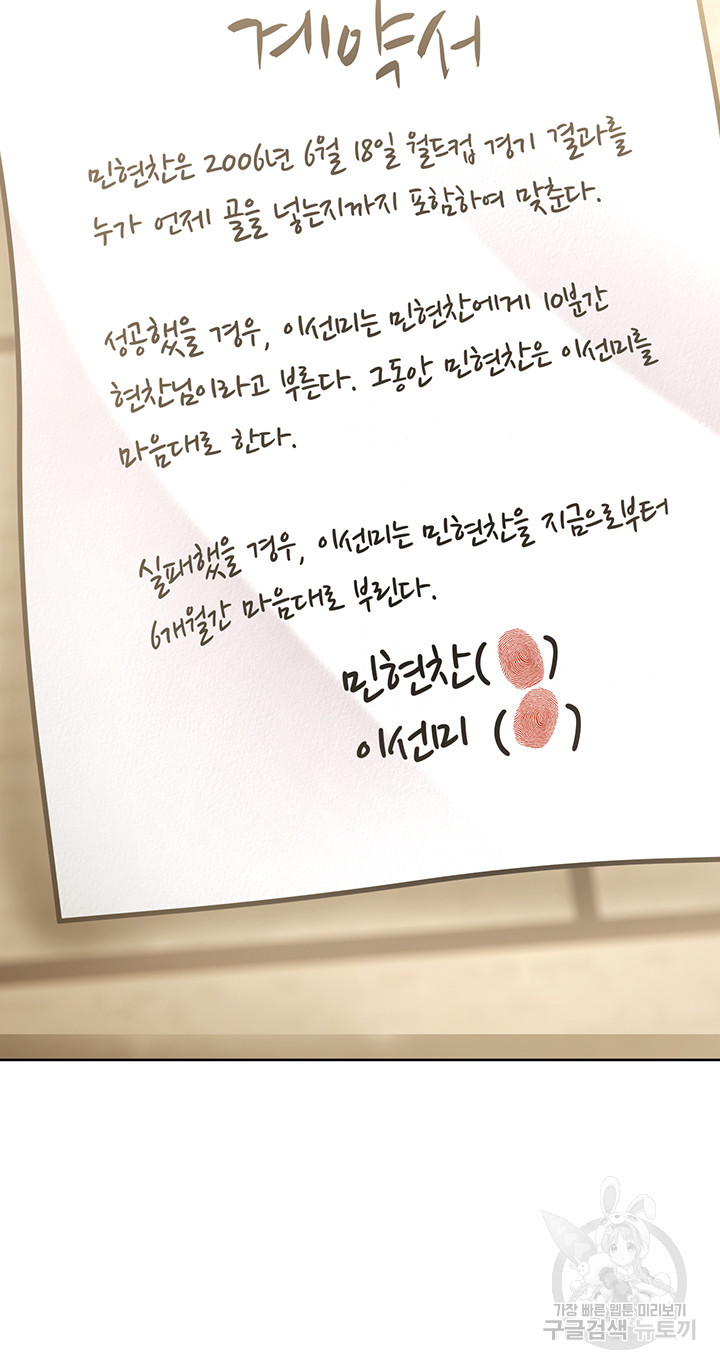 계약서
민현찬은 2006년 6월 18일 월드컵 경기 결과를
누가 언제 골을 넣는지까지 포함하여 맞춘다.
성공했을 경우, 이선미는 민현찬에게 10분간
현찬님이라고 부른다. 그동안 민현찬은 이선미를
마음대로 한다.
실패했을 경우, 이선미는 민현찬을 지금으로부터
6개월간 마음대로 부린다.
민현찬( )
이선미 ( )
가장 빠른 웹툰 미리보기
구글검색 뉴토끼